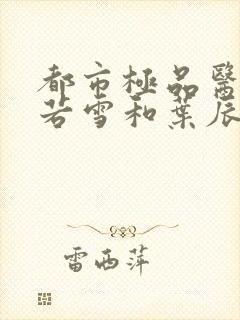 都市極品醫
若雪和葉辰
雷西萍